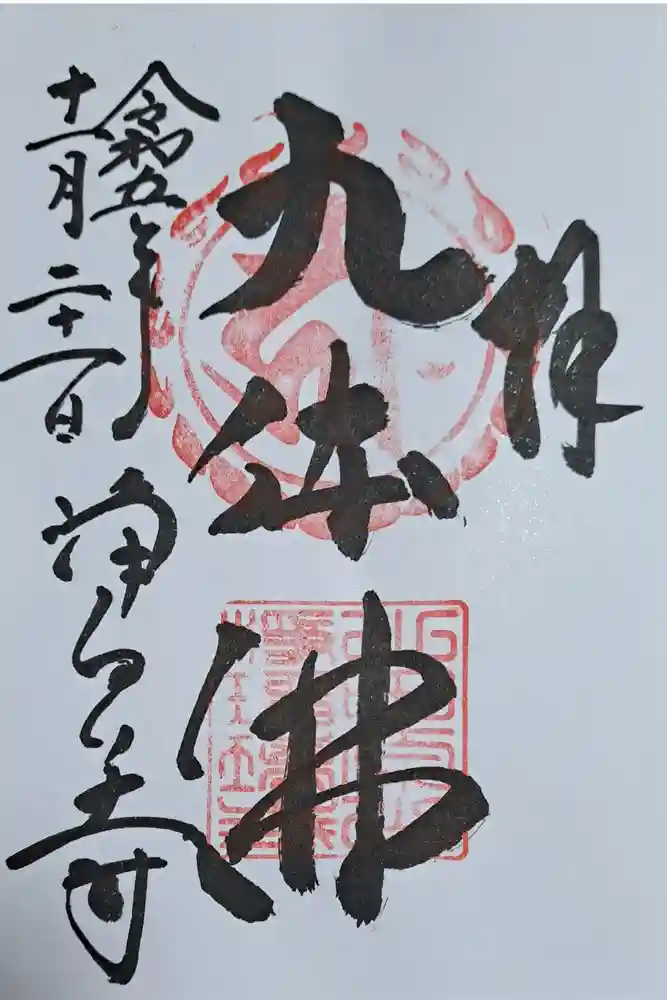 拝
九体佛
令和五年
十一月二十一日
浄 寺